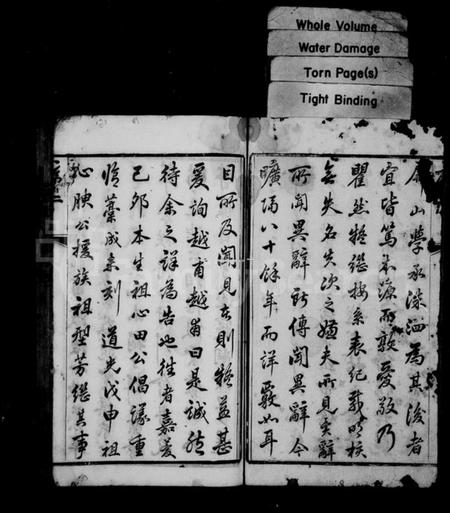 Whole Volume
Water Damage
Torn Page(s)
Tight Binding
尼山學承洙泗為其後者
宜皆篤本源而敦愛敬乃
瞿然特繼按系表紀載考核
無失名失次之嫌夫所見異辭
所聞異辭所傳聞異辭今
曠隔八十餘年而詳覈如耳
目所及聞見者則特益甚
爰詢越甫越甫曰是誠然
待余之詳為告也往者嘉慶
己卯本生祖心田公倡議重
脩藁成未刻道光戊申祖
心腴公援族祖聖芳繼其事